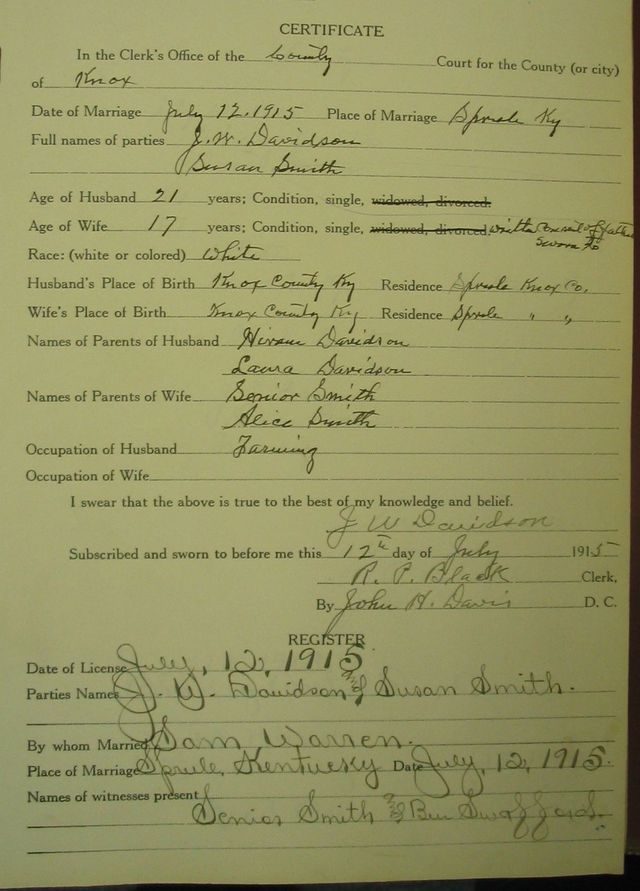 CERTIFICATE
In the Clerk's Office of the County Court for the County (or city)
of Knox
Date of Marriage July 12, 1915 Place of Marriage Sprule Ky
Full names of parties J. W. Davidson
Susan Smith
Age of Husband 21 years; Condition, single, widowed, divorced.
Age of Wife 17 years; Condition, single, widowed, divorced, written consent of father
Sworn to
Race: (white or colored) White
Husband's Place of Birth Knox County Ky Residence Sprule Knox Co.
Wife's Place of Birth Knox County Ky Residence Sprule " "
Names of Parents of Husband Hiram Davidson
Laura Davidson
Names of Parents of Wife Senior Smith
Alice Smith
Occupation of Husband Farming
Occupation of Wife
I swear that the above is true to the best of my knowledge and belief.
J W Davidson
Subscribed and sworn to before me this 12th day of July 1915
R. P. Black Clerk,
By John H. Davis D. C.
REGISTER
Date of License July, 12, 1915
Parties Names J. W. Davidson & Susan Smith.
By whom Married Sam Warren.
Place of Marriage Sprule, Kentucky Date July, 12, 1915
Names of witnesses present
Senior Smith & Ben Swafford.